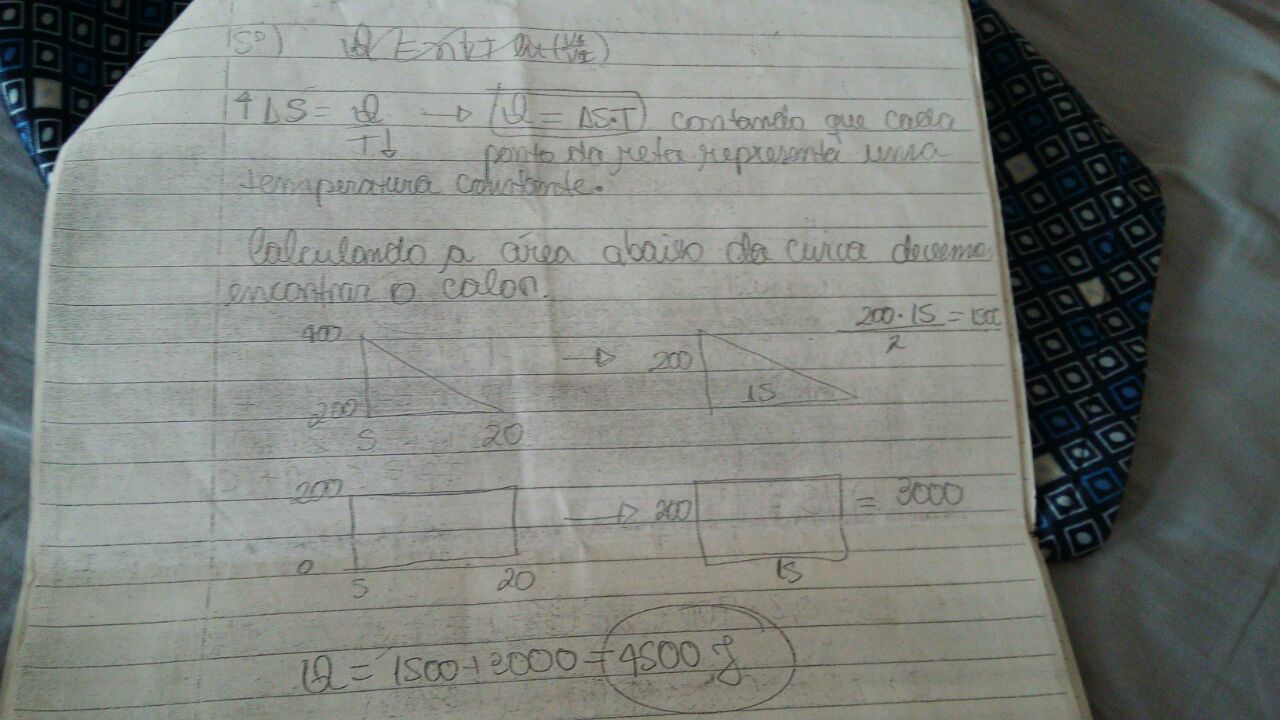 5º)
↑ΔS = Q/T↓ → Q = ΔS·T contando que cada
ponto da reta representa uma
temperatura constante.
Calculando a área abaixo da curva devemos
encontrar o calor.
400
200
5 20
→
200
15
200·15/2 = 1500
200
0
5 20
→
200
15
= 3000
Q = 1500+3000 = 4500 J